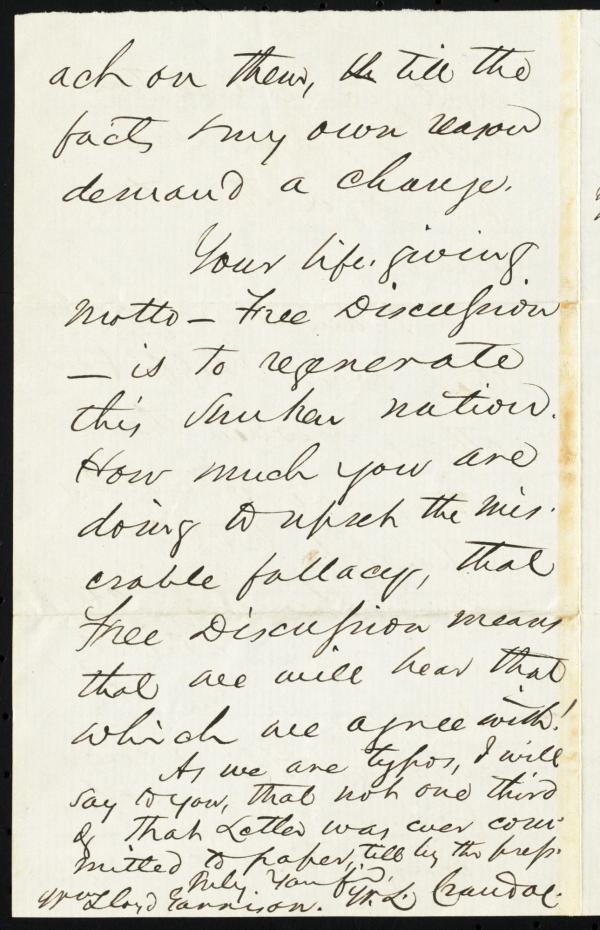 act on them, till the
facts & my own reason
demand a change.
Your life-giving
motto – Free Discussion
– is to regenerate
this nation.
How much you are
doing to upset the mis-
erable fallacy, that
Free Discussion means
that we will hear that
which we agree with!
As we are typos, I will
say to you, that not one third
of that Letter was ever com-
mitted to paper, till by the press.
Truly Yours,
Wm Lloyd Garrison. W. L. Crandal.